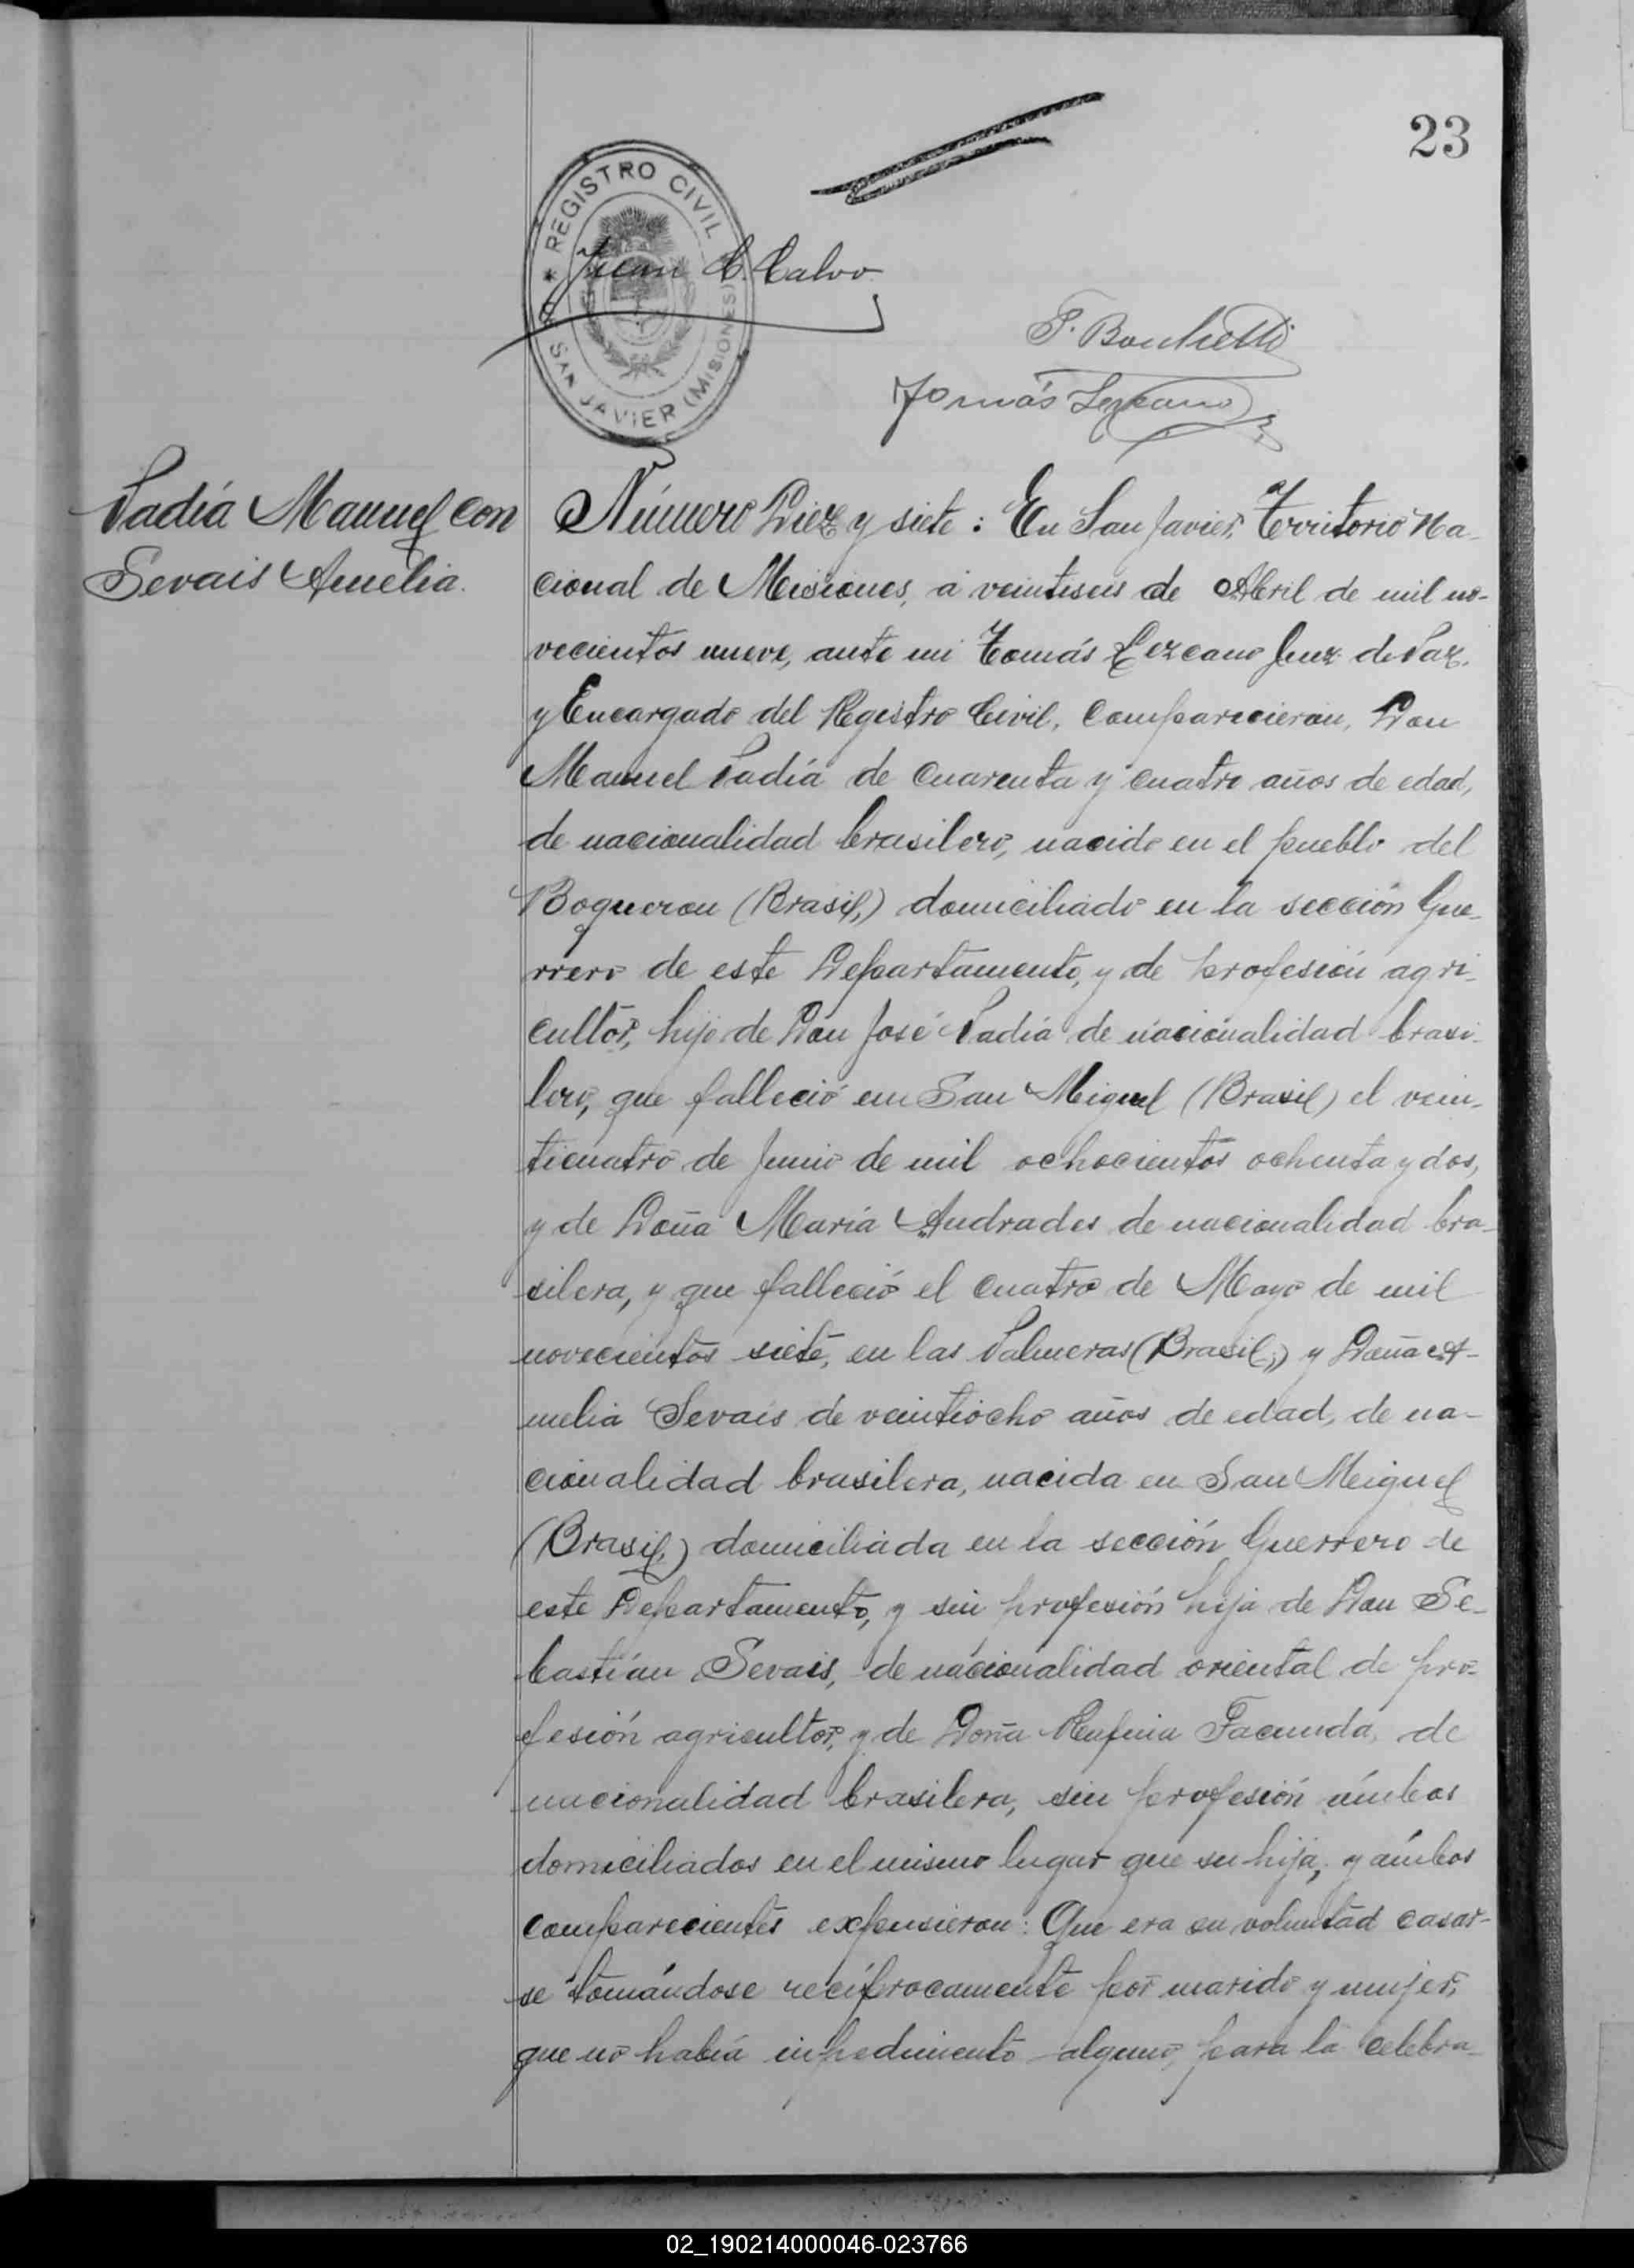 23
★ REGISTRO CIVIL ★
SAN JAVIER (MISIONES)
Juan C. Calvo
Tomás Lezcano
Padía Manuel con
Sevais Amelia.
Número Diez y siete: En San Javier, Territorio Na-
cional de Misiones, á veintiseis de Abril de mil no-
vecientos nueve, ante mi Tomás Lezcano Juez de Paz.
y Encargado del Registro Civil, Comparecieron, Don
Manuel Padía de cuarenta y cuatro años de edad,
de nacionalidad brasilero, nacido en el pueblo del
Boqueron (Brasil,) domiciliado en la sección Gue-
rrero de este Departamento, y de profesión agri-
cultor, hijo de Don José Padía de nacionalidad brasi-
lero, que falleció en San Miguel (Brasil) el vein-
ticuatro de Junio de mil ochocientos ochenta y dos,
y de Doña María Andrades de nacionalidad bra-
silera, y que falleció el cuatro de Mayo de mil
novecientos siete, en las Palmeras (Brasil;) y Doña A-
melia Sevais de veintiocho años de edad, de na-
cionalidad brasilera, nacida en San Miguel
(Brasil,) domiciliada en la sección Guerrero de
este Departamento, y sin profesión hija de Don Se-
bastían Sevais, de nacionalidad oriental de pro-
fesión agricultor, y de Doña Rufina Facunda, de
nacionalidad brasilera, sin profesión ámbos
domiciliados en el mismo lugar que su hija, y ámbos
comparecientes expusieron: Que era su voluntad casar-
se tomándose recíprocamente por marido y mujer,
que no había inpedimento alguno, para la celebra-
02_190214000046-023766